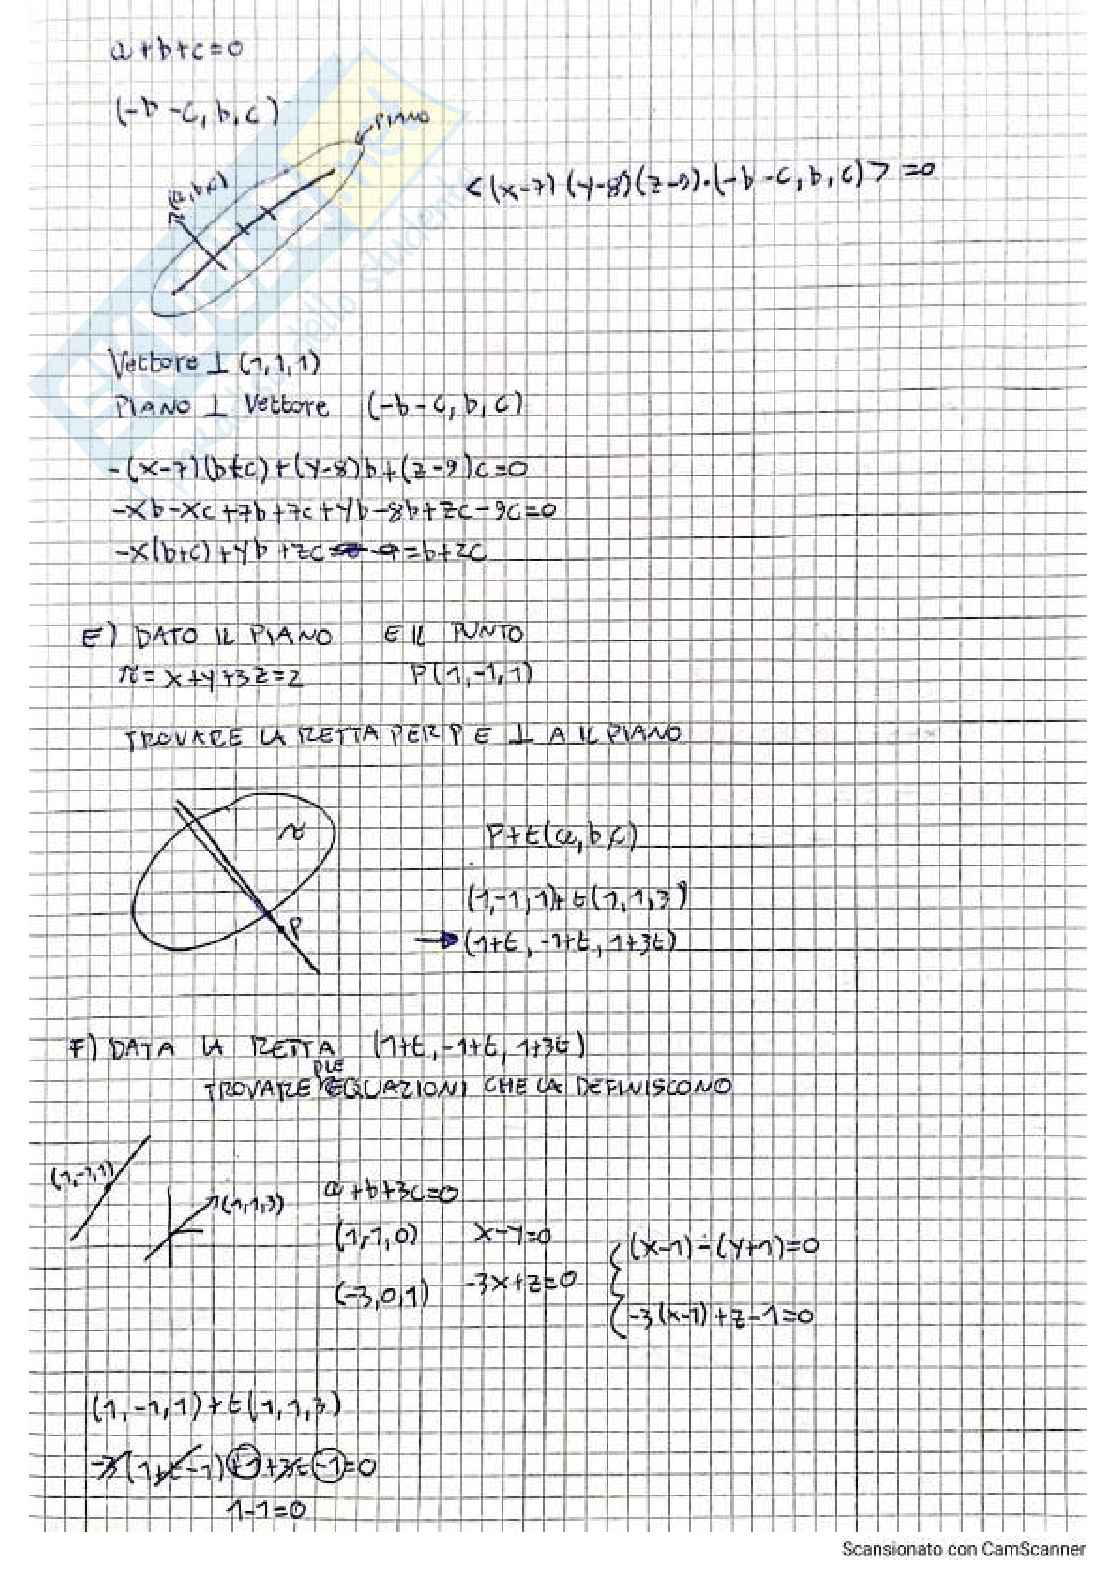 a+b+c=0
(-b-c, b, c)
PIANO
(a,b,c)
<(x-7)(y-8)(z-9)·(-b-c, b, c)>=0
Vettore ⊥ (1,1,1)
PIANO ⊥ Vettore (-b-c, b, c)
-(x-7)(b+c)+(y-8)b+(z-9)c=0
-xb-xc+7b+7c+yb-8b+zc-9c=0
-x(b+c)+yb+zc =b+2c
E) DATO IL PIANO E IL PUNTO
π=x+y+3z=2 P(1,-1,1)
TROVARE LA RETTA PER P E ⊥ A IL PIANO
π
P
P+t(a,b,c)
(1,-1,1)+t(1,1,3)
→(1+t, -1+t, 1+3t)
F) DATA LA RETTA (1+t, -1+t, 1+3t)
TROVARE DUE EQUAZIONI CHE LA DEFINISCONO
(1,-1,1)
(1,1,3)
a+b+3c=0
(1,-1,0) x-y=0
(-3,0,1) -3x+z=0
(x-1)-(y+1)=0
-3(x-1)+z-1=0
(1,-1,1)+t(1,1,3)
-3(1+t-1)+1+3t-1=0
1-1=0
Scansionato con CamScanner